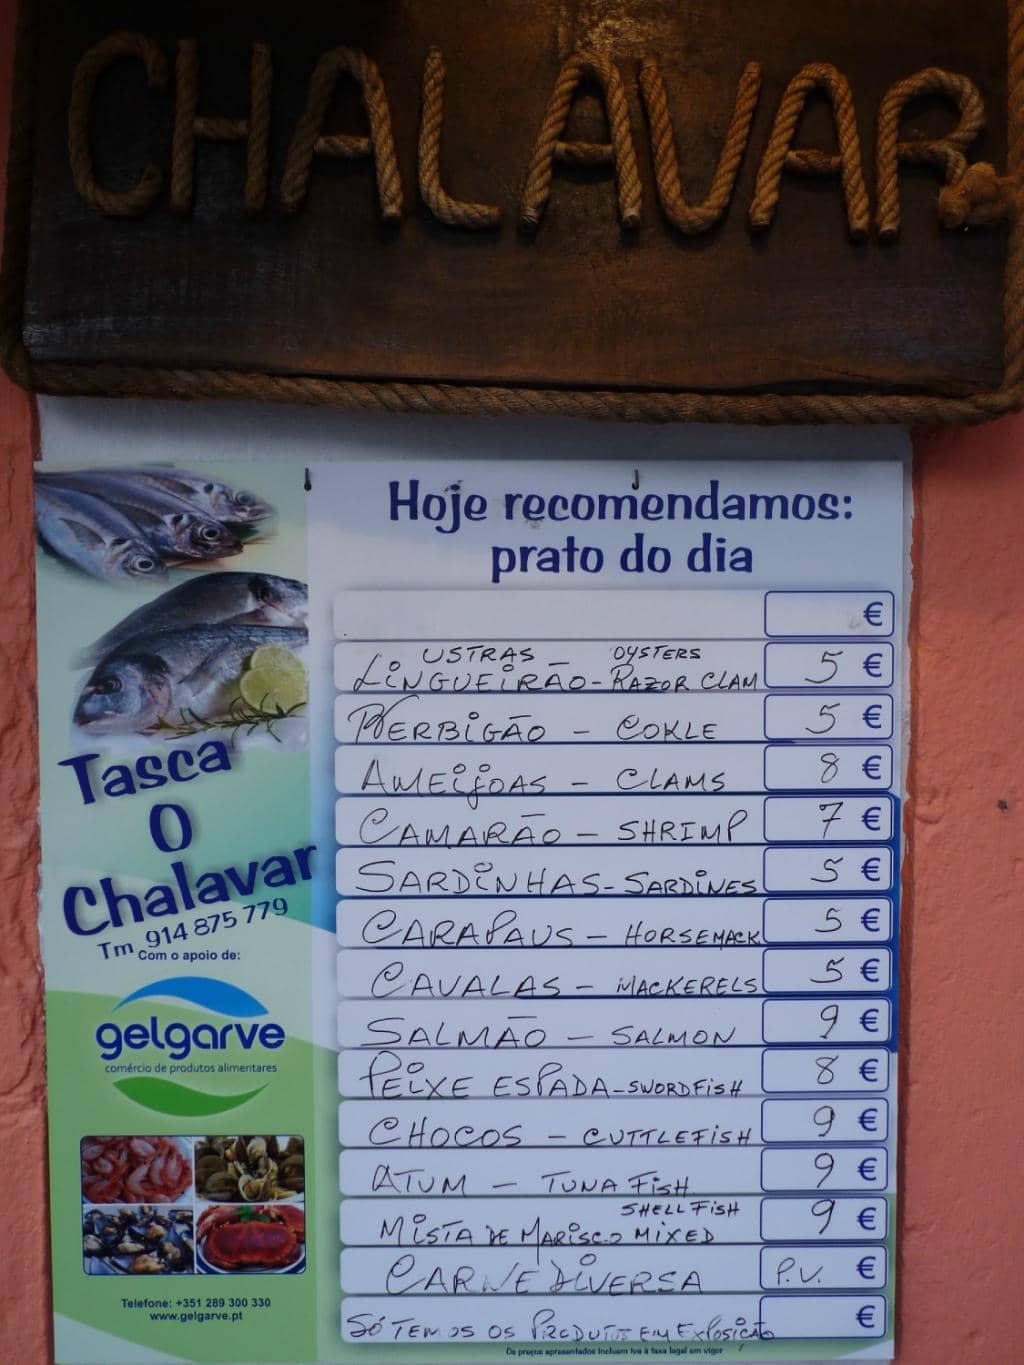 CHALAVAR
Hoje recomendamos:
prato do dia
€
USTRAS - OYSTERS
LINGUEIRÃO - RAZOR CLAM 5 €
BERBIGÃO - COKLE 5 €
AMEIJOAS - CLAMS 8 €
CAMARÃO - SHRIMP 7 €
SARDINHAS - SARDINES 5 €
CARAPAUS - HORSEMACK 5 €
CAVALAS - MACKERELS 5 €
SALMÃO - SALMON 9 €
PEIXE ESPADA - SWORDFISH 8 €
CHOCOS - CUTTLEFISH 9 €
ATUM - TUNA FISH 9 €
SHELLFISH
MISTA DE MARISCO MIXED 9 €
CARNE DIVERSA P.V. €
SÓ TEMOS OS PRODUTOS EM EXPOSIÇÃO €
Os preços apresentados incluem iva à taxa legal em vigor
Tasca
O
Chalavar
Tm 914 875 779
Com o apoio de:
gelgarve
comércio de produtos alimentares
Telefone: +351 289 300 330
www.gelgarve.pt